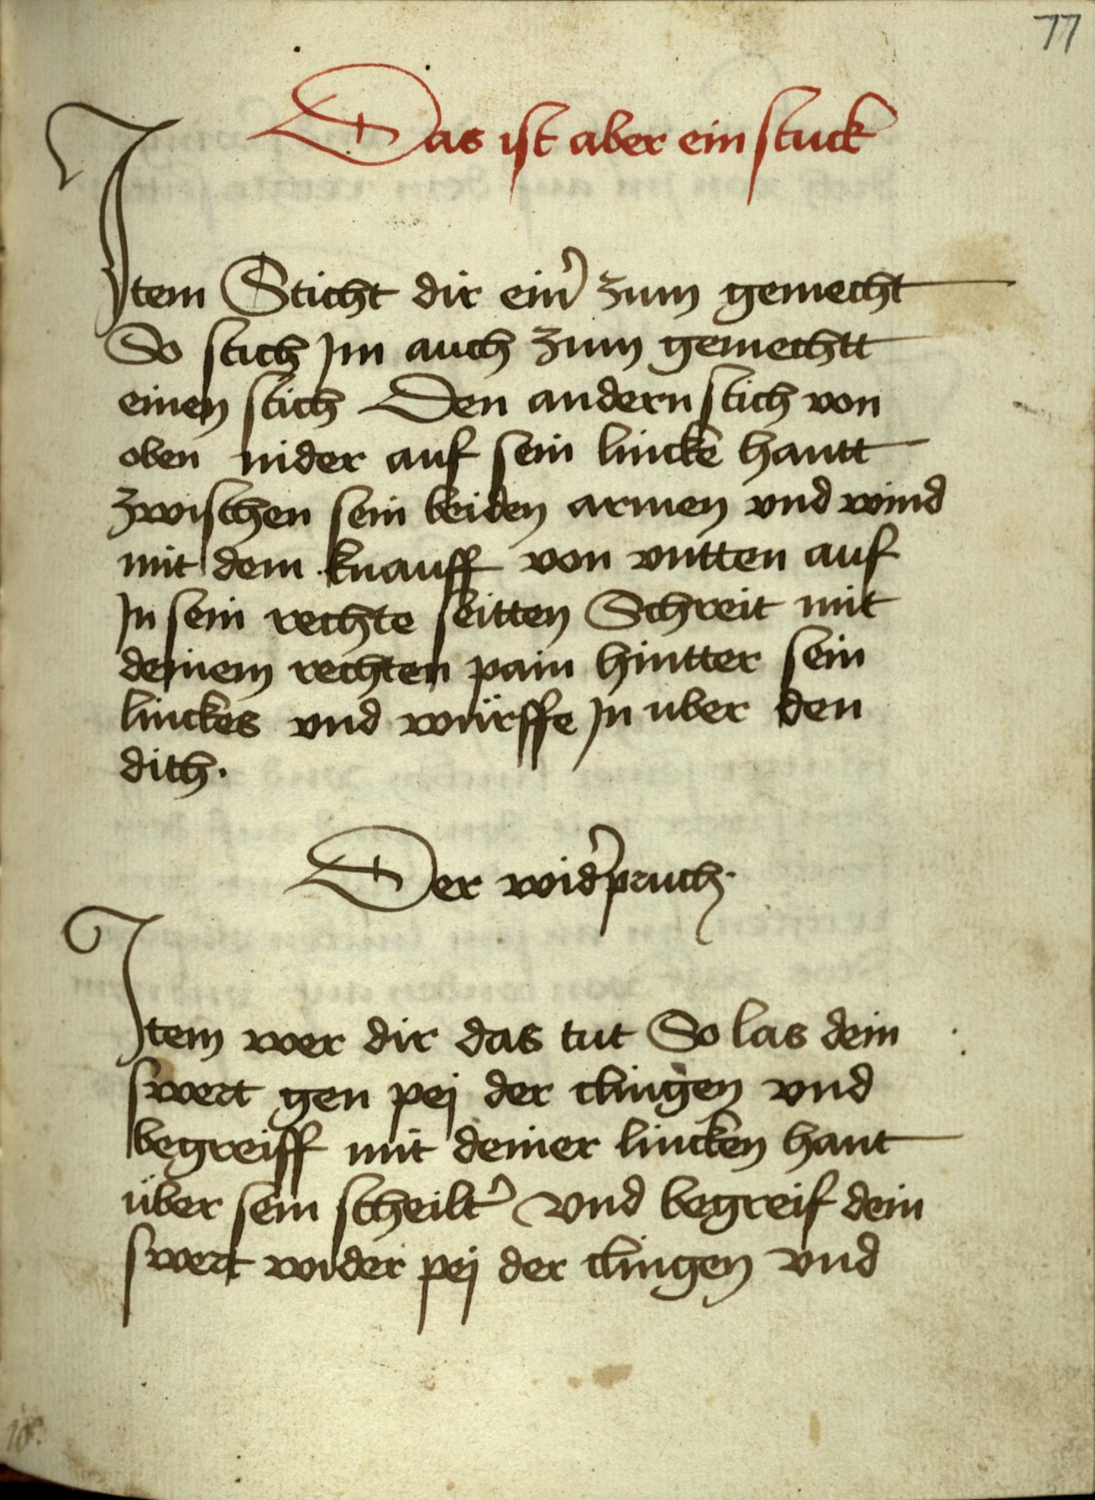 77
Das ist aber ein stuck
Item Sticht dir ein̕ zum gemecht
So stich Im auch zum gemechtt
einen stich Den andern stich von
oben nider auf sein lincke hantt
zwischen sein beiden armen vnd wind
mit dem knauff von vntten auf
In sein rechte seitten Schreit mit
deinem rechten pain hintter sein
linckes vnd würffe In uber den
dich.
Der wid̕pruch.
Item wer dir das tut So las dein
swert gen pej der clingen vnd
begreiff mit deiner lincken hant
über sein scheilt̕ vnd begreif dein
swert wider pej der clingen vnd